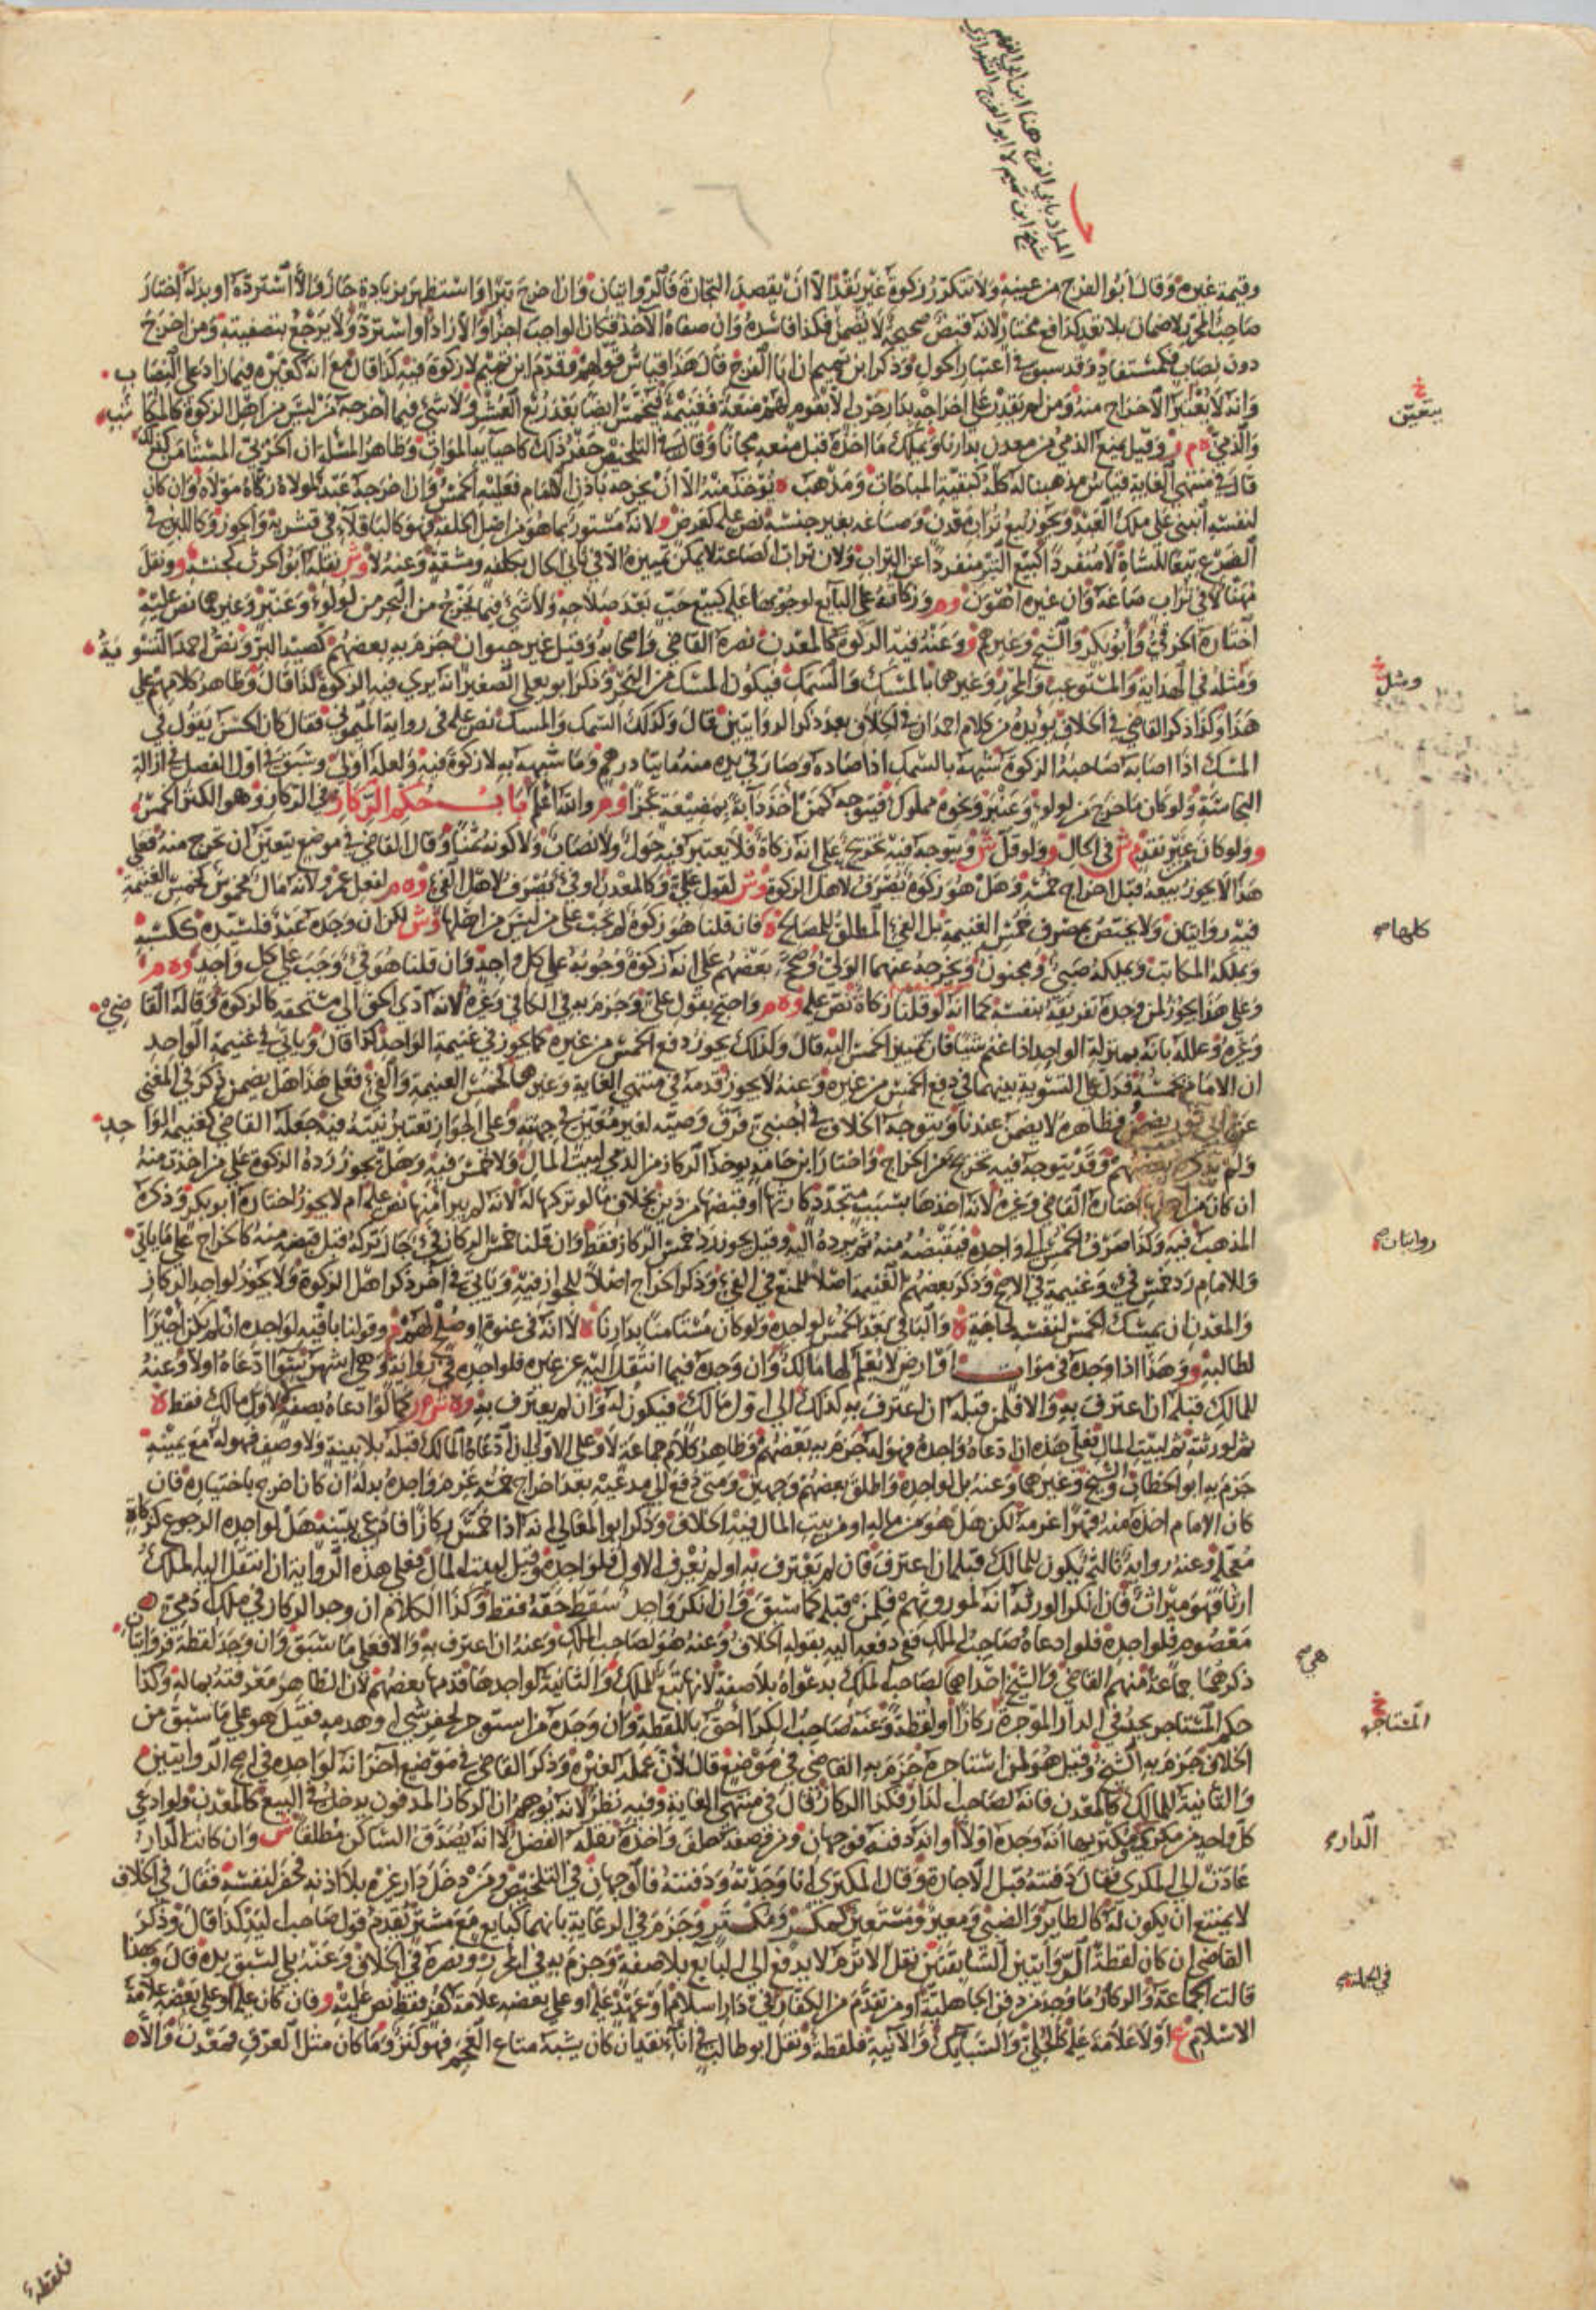 المراد بابي الفرج هنا ابن ابي الفهم
شيخ ابن تميم لا ابو الفرج الشيرازي
وقيمة غيره وقال أبو الفرج من عينه ولا تتكرر زكوة غير نقد الا أن يقصد التجارة فالروايتان وان اخرج تبرا واستظهر بزيادة جاز والا استرده او بدله اختار
صاحب المحرر بلا ضمان بلا تعد كدافع مختار لانه قبض صحيح لا يضمن فكذا فاسده وان صفاه الآخذ فكان الواجب اجزا والا زاد او استرد ولا يرجع بتصفيته ومن اخرج
دون نصاب فكمستفاد وقد سبق في اعتبار الحول وذكر ابن تميم ان ابا الفرج قال هذا قياس قولهم وقدم ابن تميم لا زكوة فيه كذا قال مع انه كغيره فيما زاد على النصاب
وانه لا يعتبر الاخراج منه ومن لم يقدر على اخراجه بدار حرب الا بقوم لهم منعة فغنيمة فيخمس ايضا بعد ربع العشر ولا شي فيما اخرجه من ليس من اهل الزكوة كالمكاتب
والذمي ه م ر وقيل يمنع الذمي من معدن بدارنا ويملك ما اخذه قبل منعه مجانا وقال في التلخيص حفر ذلك كاحيايه الموات وظاهر المسئلة ان الحربي المستامن كذلك
قال في منتهى الغاية قياس مذهبنا له كله كبقية المباحات ومذهب ه يؤخذ منه الا أن يخرجه باذن الامام فعليه الخمس وان اخرجه عبد لمولاه زكاه مولاه وان كان
لنفسه انبنى على ملك العبد ويجوز بيع تراب معدن وصاغة بغير جنسه نص عليه كعرض و لانه مستور بما هو من اصل الخلقة فهو كالباقلا في قشريه والجوز وكاللبن في
الضرع تبعا للشاة لا منفردا كبيع التبر منفردا عن التراب ولان تراب الصاغة لا يمكن تمييزه الا في ثاني الحال بكلفة ومشقة وعنه لا وش نقله ابو الحرث كجنسه و ونقل
مهنا لا في تراب صاغة وان غيره اهون وه وزكاته على البايع لوجوبها عليه كبيع حب بعد صلاحه ولا شئ فيما يخرج من البحر من لولو وعنبر وغيرهما نص عليه
اختاره الخرقي وأبو بكر والشيخ وغيرهم و وعنه فيه الزكوة كالمعدن نصره القاضي واصحابه وقيل غير حيوان جزم به بعضهم كصيد البر ونص احمد التسوية
ومثله في الهداية والمستوعب والمحرر وغيرها بالمسك والسمك فيكون المسك من البحر وذكر ابو يعلى الصغير انه يرى فيه الزكوة كذا قال وظاهر كلامهم على
هذا وكذا ذكر القاضي في الخلاف يؤيده من كلام احمد ان في الخلاف بعد ذكر الروايتين قال وكذلك السمك والمسك نص عليه في رواية الميموني فقال كان الحسن يقول في
المسك اذا اصابه صاحبه الزكوة شبهه بالسمك اذا صاده وصار في يده منه مايتا درهم وما شبهه به لا زكوة فيه ولعله اولى وسبق في اول الفصل في ازالة
النجاسة ولو كان ما خرج من لولو وعنبر ونحوه مملوك فيتوجه كمن اخذ دابة بمضيعة عجزا و ه م ر والله اعلم باب حكم الركاز في الركاز وهو الكنز الخمس
و ولو كان غير نقد م ش في الحال و ولو قل ش ويتوجه فيه تخريج على انه زكاة فلا يعتبر فيه حول ولا نصاب ولا كونه ثمنا وقال القاضي في موضع يتعين ان تخرج منه فعلى
هذا لا يجوز بيعه قبل اخراج خمسه وهل هو زكوة يصرف لاهل الزكوة وش لقول علي وكالمعدن او فيء يصرف لاهل الفيء وه م لفعل عمر ولانه مال مخموس كخمس الغنيمة
فيه روايتان ولا يختص بمصرف خمس الغنيمة بل الفيء المطلق للمصالح ه فان قلنا هو زكوة لم تجب على من ليس من اهلها وش لكن ان وجده عبد فلسيده ككسبه
ويملكه المكاتب ويملكه صبي ومجنون ويخرجه عنهما الولي وصحح بعضهم على انه زكوة وجوبه على كل واجد وان قلنا هو فيء وجب على كل واجد وه م
وعلى هذا يجوز لمن وجده تفريقه بنفسه كما انه لو قلنا زكاة نص عليه وه م واحتج بقول علي وجزم به في الكافي وغيره لانه ادى الحق الى مستحقه كالزكوة وقاله القاضي
وغيره وعلله بانه بمنزلة الواجد اذا غنم شيئا فان تميز الخمس اليه قال وكذلك يجوز دفع الخمس من غيره كما يجوز في غنيمة الواحد كذا قال وياتي في غنيمة الواحد
ان الامام يخمسه فدل على التسوية بينهما في دفع الخمس من غيره وعنه لا يجوز قدمه في منتهى الغاية وغيرها كخمس الغنيمة والفيء فعلى هذا هل يضمن ذكر في المغني
عن ابي ثور يضمن فظاهره لا يضمن عندنا ويتوجه الخلاف في اجنبي فرق وصية لغير معين في جهته وعلى الجواز تعتبر نيته فيه جعله القاضي كغنيمة الواحد
ولم يذكره بعضهم وقد يتوجه فيه تخريج من الخراج واختار ابن حامد يوخذ الركاز من الذمي لبيت المال ولا خمس فيه وهل يجوز رده الزكوة على من اخذت منه
ان كان من اهلها اختاره القاضي وغيره لانه اخذها بسبب متجدد كارثها او قبضها من دين بخلاف ما لو تركها له لانه لم يبرا منها نص عليه ام لا يجوز اختاره ابو بكر وذكره
المذهب فيه وكذا صرف الخمس الى واجده فيقبضه منه ثم يرده اليه وقيل يجوز رد خمس الركاز فقط وان قلنا خمس الركاز فيء جاز تركه قبل قبضه منه كالخراج على ما ياتي
وللامام رد خمس فيء وغنيمة في الاصح وذكر بعضهم الغنيمة اصلا للمنع في الفيء وذكر الخراج اصلا للجواز فيه وياتي في آخر ذكر اهل الزكوة ولا يجوز لواجد الركاز
والمعدن ان يمسك الخمس لنفسه لحاجة ه والباقي بعد الخمس لواجده ولو كان مستامنا بدارنا ه لا انه في عنوة او صلح لهم م وقولنا باقيه لواجده ان لم يكن اجيرا
لطالبه و وهذا اذا وجده في موات او ارض لا يعلم لها مالك وان وجده فيما انتقل اليه عن غيره فلواجده في رواية وهي اشهر سوا ادعاه اولا وعنه
للمالك قبله ان اعترف به والا فلمن قبله ان اعترف به كذلك الى اول مالك فيكون له وان لم يعترف به وه ش م ر كما لو ادعاه بصفة لاول مالك فقط ه
ثم لورثته ثم لبيت المال فعلى هذه ان ادعاه واجده فهو له جزم به بعضهم وظاهر كلام جماعة لا وعلى الاولى ان ادعاه المالك قبله بلا بينة ولا وصف فهو له مع يمينه
جزم به ابو الخطاب والشيخ وغيرهما وعنه بل لواجده واطلق بعضهم وجهين ومتى دفع الى مدعيه بعد اخراج خمسه غرم واجده بدله ان كان اخرج باختياره فان
كان الامام اخذه منه قهرا غرمه لكن هل هو من ماله او من بيت المال فيه الخلاف وذكر ابو المعالي انه اذا خمس ركازا فادعي ببينة هل لواجده الرجوع كزكاة
معجلة وعنه رواية ثالثة يكون للمالك قبله ان اعترف فان لم يعترف به او لم يعرف الاول فلواجده وقيل لبيت المال فعلى هذه الرواية ان انتقل اليه الملك
ارثا فهو ميراث فان انكر الورثة انه لموروثهم فلمن قبله كما سبق وان انكر واحد سقط حقه فقط وكذا الكلام ان وجد الركاز في ملك ذمي
معصوم فلواجده فلو ادعاه صاحب الملك ففي دفعه اليه بقوله الخلاف وعنه هو لصاحب الملك وعنه ان اعترف به والا فعلى ما سبق وان وجد لقطة فروايتان
ذكرهما جماعة منهم القاضي والشيخ احداهما لصاحب الملك بدعواه بلا صفة لانها تبع للملك والثانية لواجدها قدمها بعضهم لان الظاهر معرفته بماله وكذا
حكم المستاجر يجد في الدار الموجرة ركازا او لقطة وعنه صاحب الكرا أحق باللقطة وان وجده من استوجر لحفر شي او هدمه فقيل هو على ما سبق من
الخلاف جزم به الشيخ وقيل هو لمن استاجره جزم به القاضي في موضع قال لان عمله لغيره وذكر القاضي في موضع آخر انه لواجده في اصح الروايتين
والثانية للمالك كالمعدن فانه لصاحب الدار فكذا الركاز قال في منتهى الغاية وفيه نظر لانه يوهم ان الركاز المدفون يدخل في البيع كالمعدن ولو ادعى
كل واحد من مكر ومكتر بها انه وجده اولا او انه دفنه فوجهان ومن وصفه حلف واخذه نقله الفضل لا انه يصدق الساكن مطلقا ش وان كانت الدار
عادت الى المكري فقال دفنته قبل الاجارة وقال المكتري انا وجدته ودفنته فالوجهان في التلخيص ومن دخل دار غيره بلا اذنه فحفر لنفسه فقال في الخلاف
لا يمتنع ان يكون له كالطاير والضبي ومعير ومستعير كمكر ومكتر وجزم في الرعاية بانهما كبايع مع مشتر يقدم قول صاحب اليد كذا قال وذكر
القاضي ان كان لقطة الروايتين السابقتين نقل الاثرم لا يدفع الى البايع بلا صفة وجزم به في المحرر ونصره في الخلاف وعنه بلى لسبق يده قال وبهذا
قالت الجماعة والركاز ما وجد من دفن الجاهلية او من تقدم من الكفار في دار اسلام او عهد عليه او على بعضه علامة كفر فقط نص عليه و فان كان عليه او على بعضه علامة
الاسلام ع او لا علامة عليه كالحلي والسبايك والآنية فلقطة ونقل ابو طالب في انا نقد ان كان يشبه متاع العجم فهو كنز وما كان مثل العرق فمعدن والا
يتعين
ومثل
كلهاصح
روايتان صح
هي صح
المستاجر
الدار صح
في الجملة صح
فلقطة